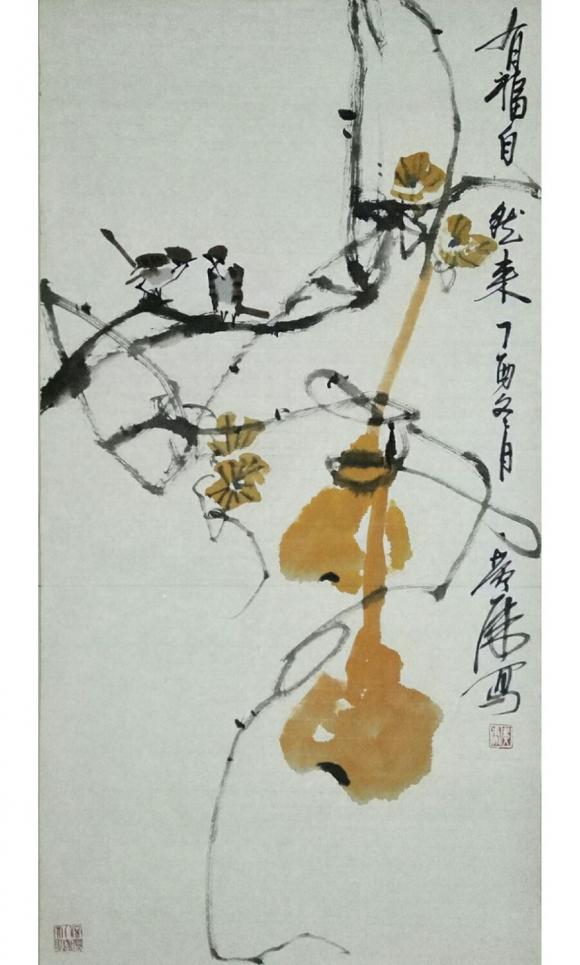 有福自然来丁酉冬月
写